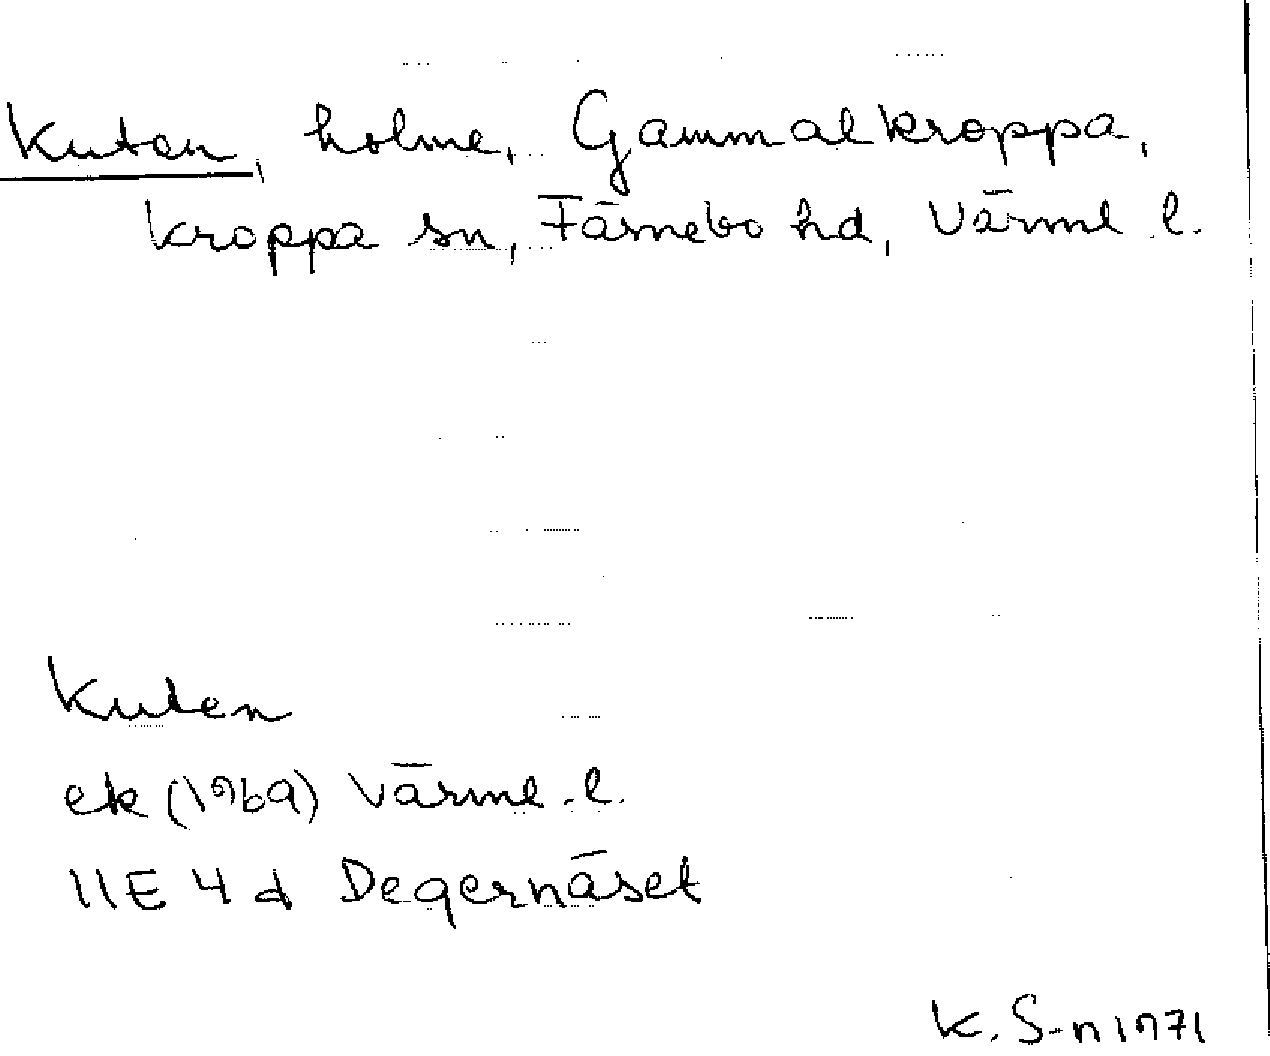 Kuten, holme, Gammalkroppa,
Kroppa sn, Färnebo hd, Värml. l.
Kuten
ek (1969) Värml. l.
11E 4 d Degernäset
K. S-n 1971